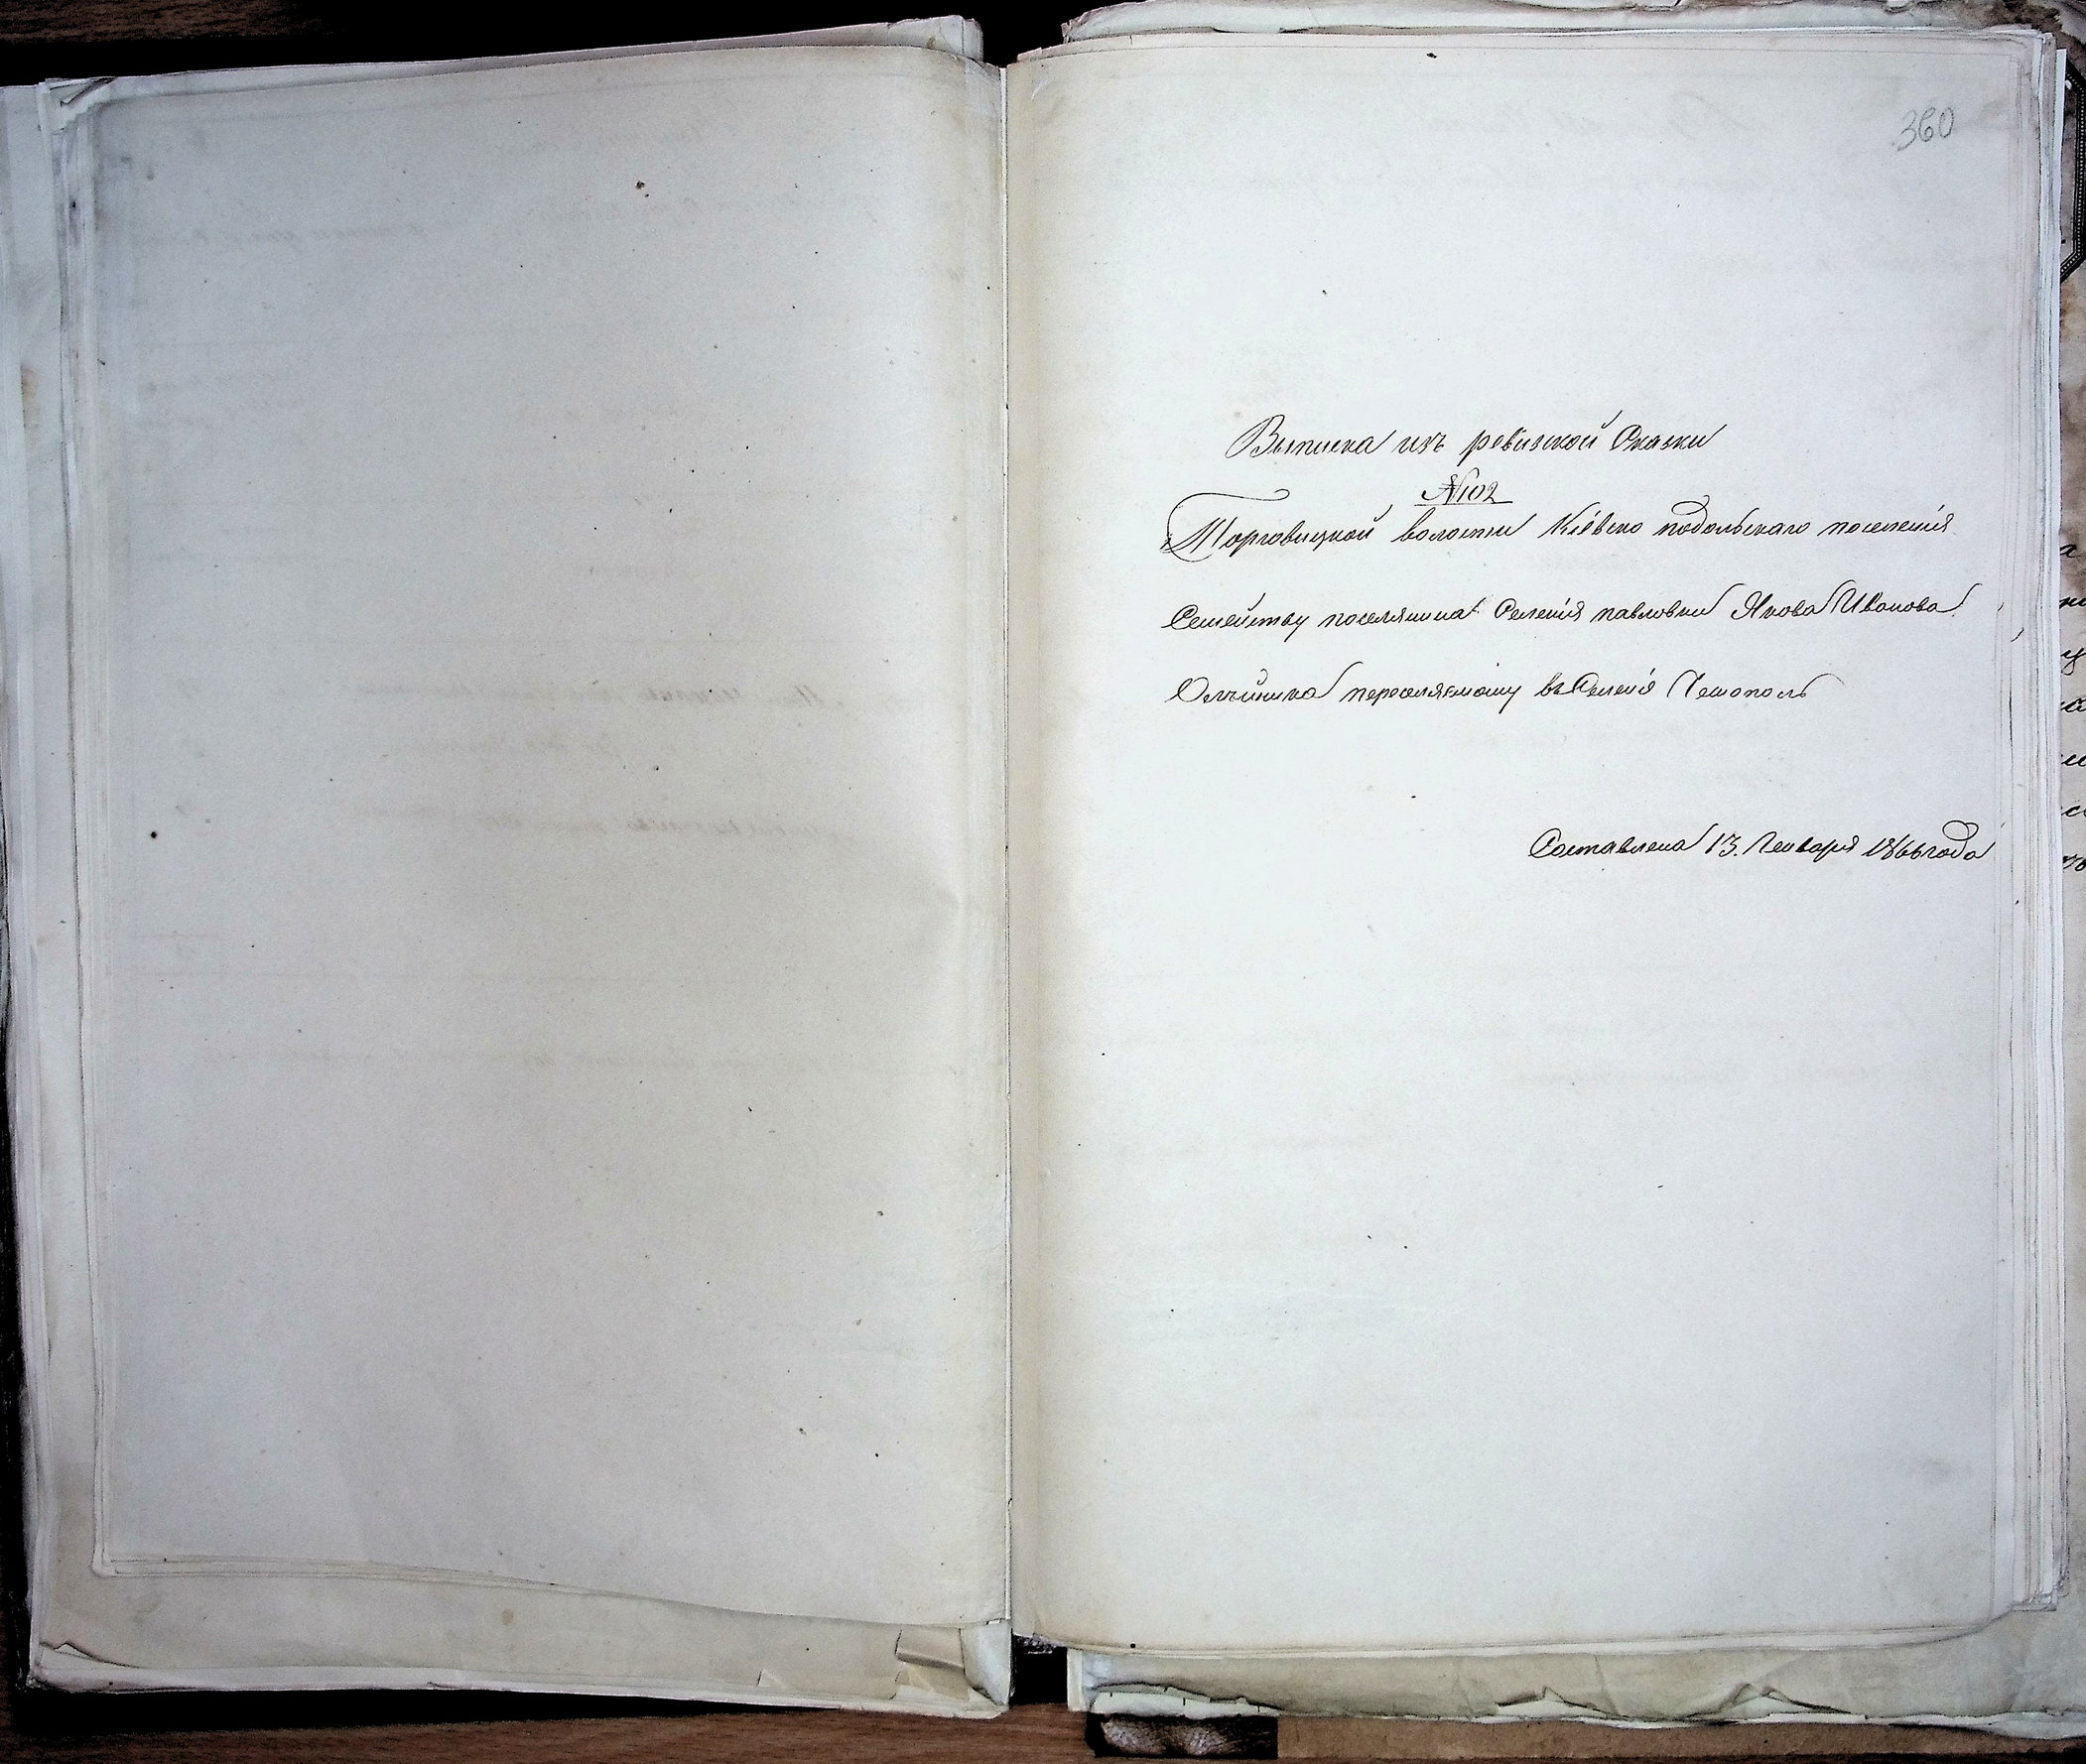 360
Выписка изъ ревизской Сказки
№102
Торговицкой волости Кіевско подольскаго поселенія
Семейству поселянина Селенія павловки Якова Иванова
Олѣйника переселяемому въ Селеніѣ
Составлена 13. Генваря 1866 года